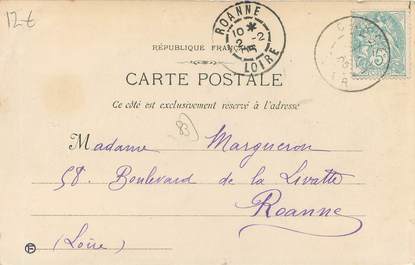 12€
ROANNE
10 *
2 -2
LOIRE
RÉPUBLIQUE FRANÇAISE
CARTE POSTALE
Ce côté est exclusivement réservé à l'adresse
83
Madame Margueron
58. Boulevard de la Livatte
Roanne
(Loire)